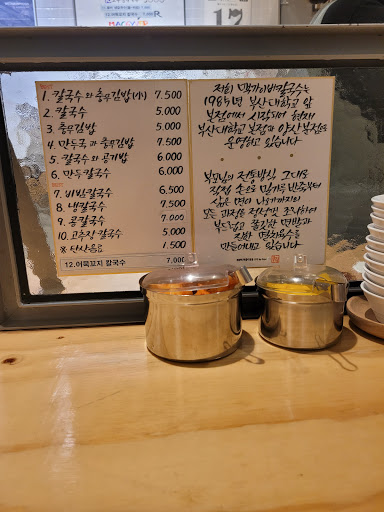 1. 칼국수와 충무김밥(小) 7.500
2. 칼국수 5.000
3. 충무김밥 5.000
4. 만두국과 충무김밥 7.500
5. 칼국수와 공기밥 6.000
6. 만두칼국수 6.000
7. 비빔칼국수 6.500
8. 냉칼국수 7.500
9. 콩칼국수 7.000
10. 고추장칼국수 5.000
※ 탄산음료 1.500
12.어묵꼬지 칼국수 7.000
저희 칼국수는
1985년 부산대학교 앞
본점에서 시작되어 현재
부산대학교 본점과 양산 분점을
운영하고 있습니다
부모님의 전통방식 그대로
직접 손으로 밀가루 반죽부터
삶은 면이 나가기까지의
모든 과정을 정성껏 조리하여
부드럽고 쫄깃한 면발과
진한 멸치육수를
만들어내고 있습니다